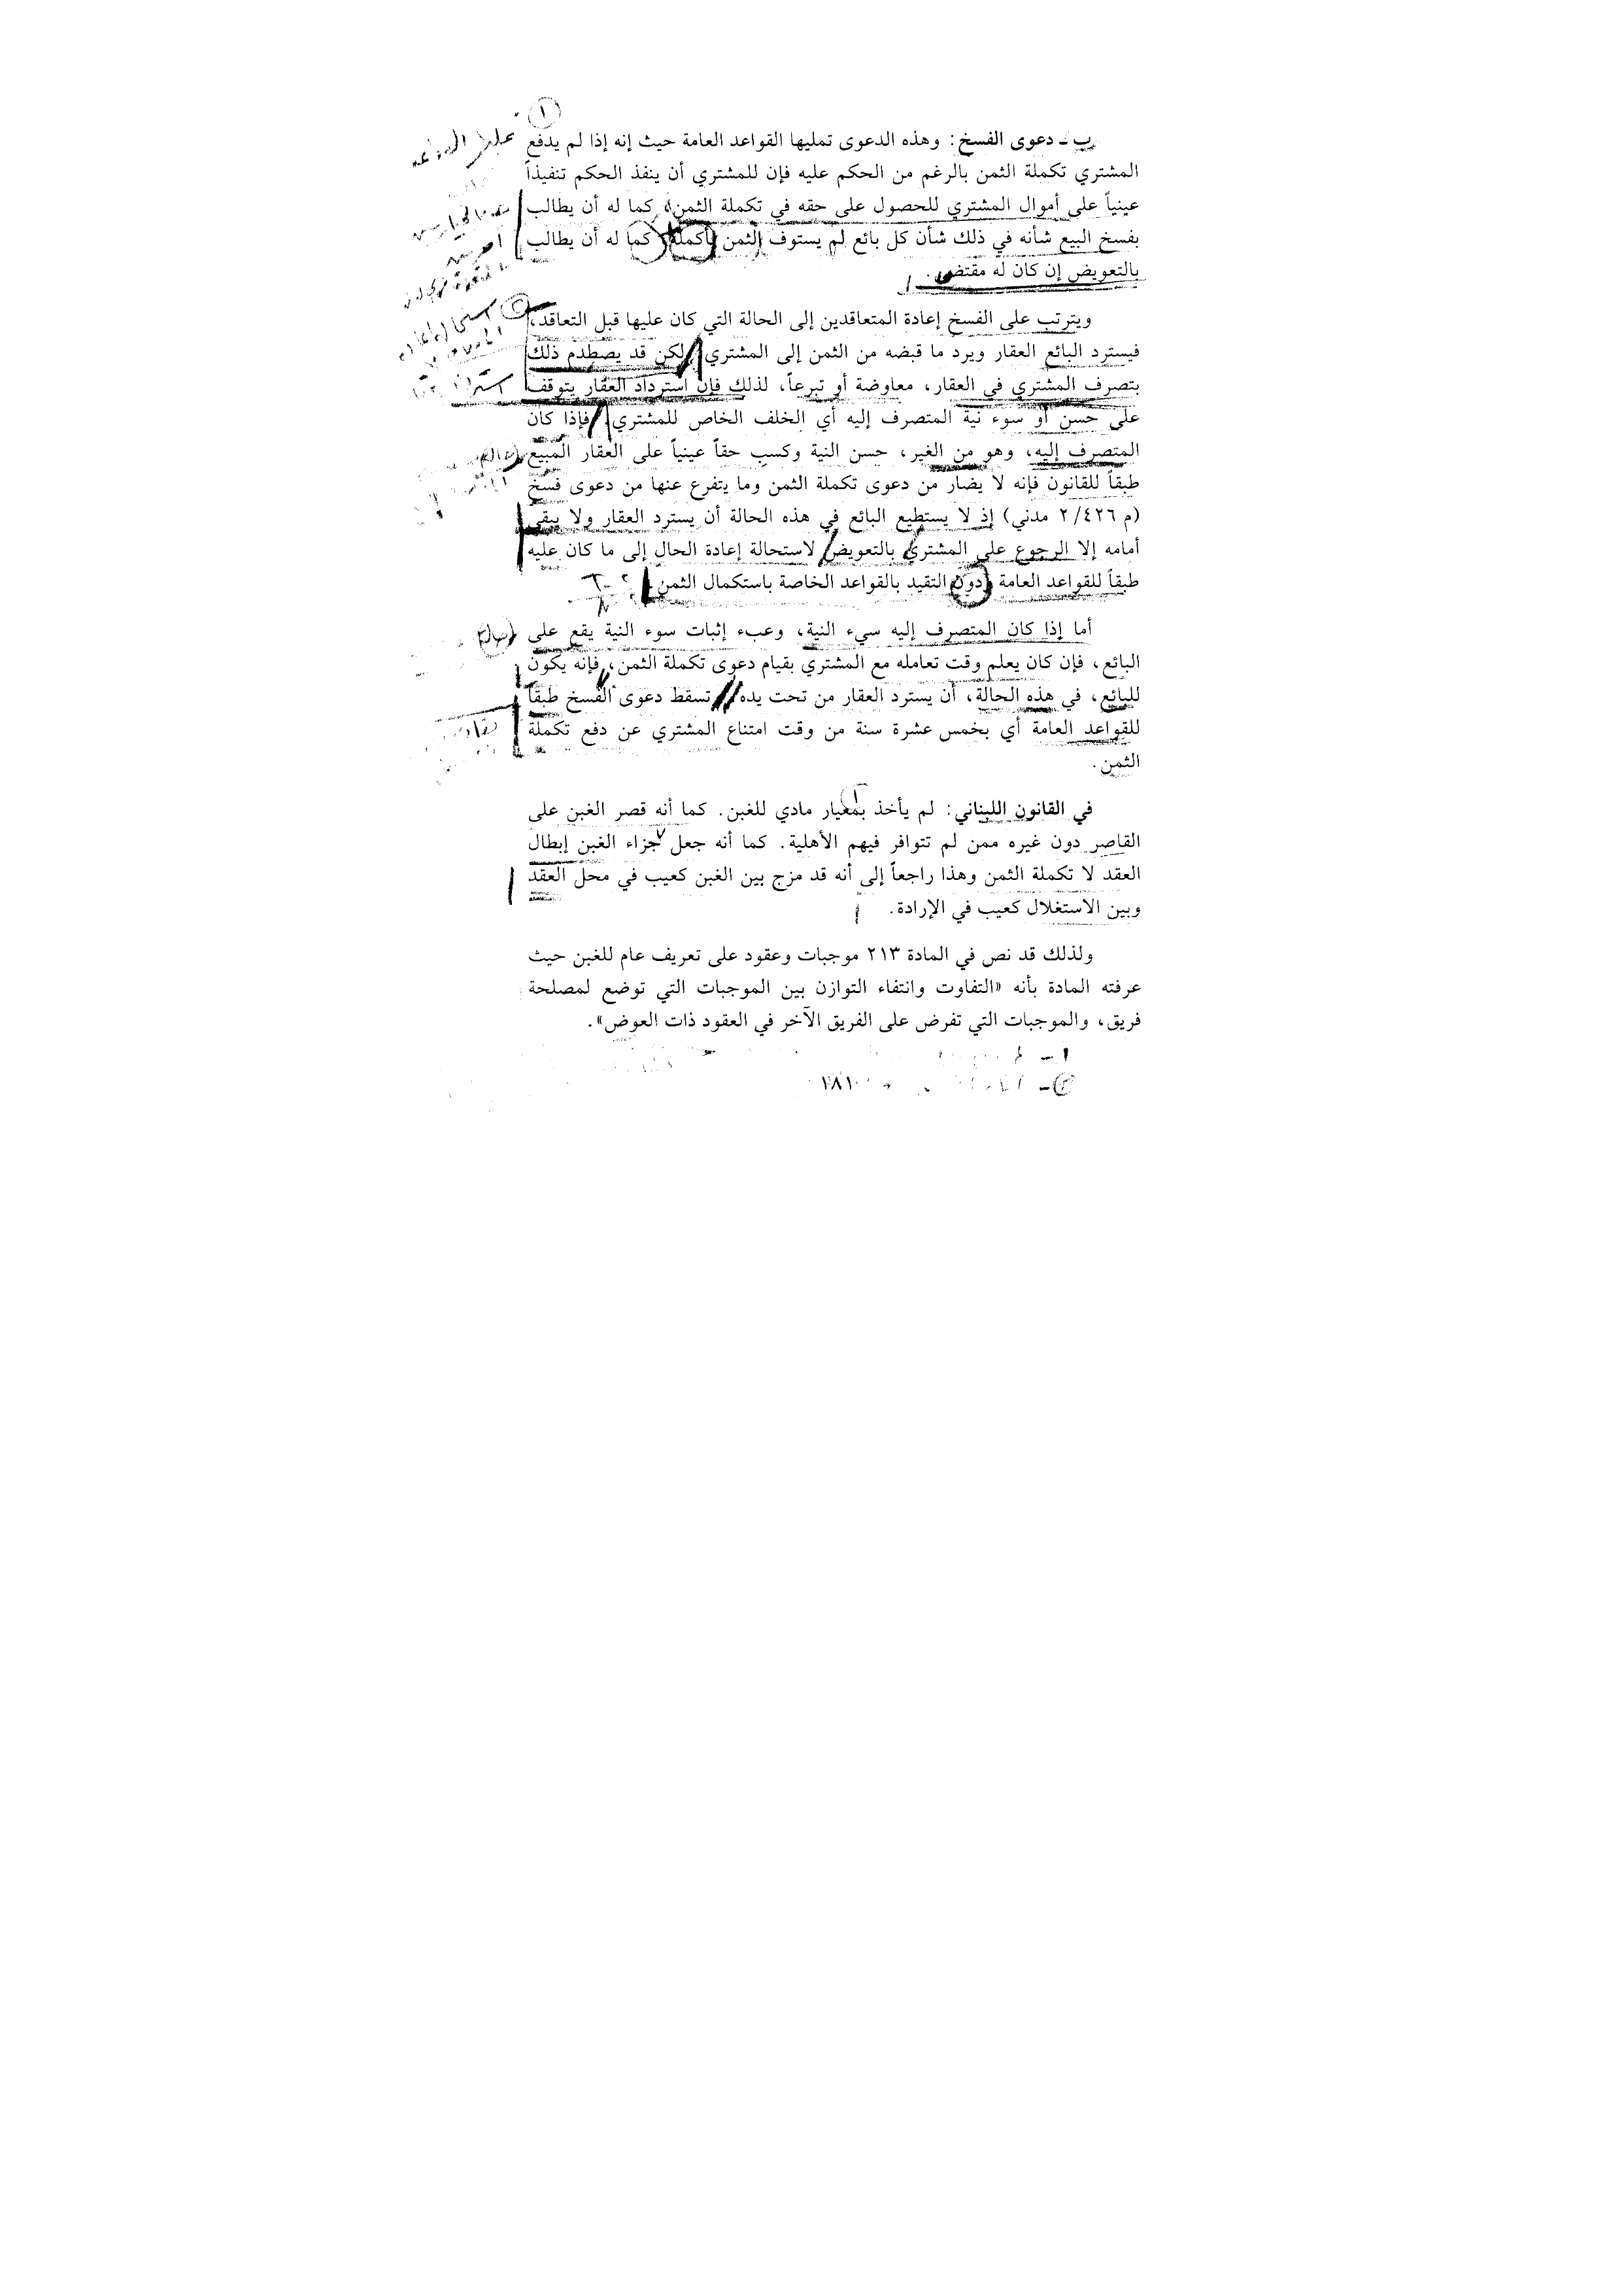 ب ـ دعوى الفسخ: وهذه الدعوى تمليها القواعد العامة حيث إنه إذا لم يدفع
المشتري تكملة الثمن بالرغم من الحكم عليه فإن للمشتري أن ينفذ الحكم تنفيذاً
عينياً على أموال المشتري للحصول على حقه في تكملة الثمن، كما له أن يطالب
بفسخ البيع شأنه في ذلك شأن كل بائع لم يستوف الثمن بأكمله، كما له أن يطالب
بالتعويض إن كان له مقتضى.
ويترتب على الفسخ إعادة المتعاقدين إلى الحالة التي كان عليها قبل التعاقد،
فيسترد البائع العقار ويرد ما قبضه من الثمن إلى المشتري. لكن قد يصطدم ذلك
بتصرف المشتري في العقار، معاوضة أو تبرعاً، لذلك فإن استرداد العقار يتوقف
على حسن أو سوء نية المتصرف إليه أي الخلف الخاص للمشتري. فإذا كان
المتصرف إليه، وهو من الغير، حسن النية وكسب حقاً عينياً على العقار المبيع
طبقاً للقانون فإنه لا يضار من دعوى تكملة الثمن وما يتفرع عنها من دعوى فسخ
(م ٢/٤٢٦ مدني) إذ لا يستطيع البائع في هذه الحالة أن يسترد العقار ولا يبقى
أمامه إلا الرجوع على المشتري بالتعويض لاستحالة إعادة الحال إلى ما كان عليه
طبقاً للقواعد العامة دون التقيد بالقواعد الخاصة باستكمال الثمن.
أما إذا كان المتصرف إليه سيء النية، وعبء إثبات سوء النية يقع على
البائع، فإن كان يعلم وقت تعامله مع المشتري بقيام دعوى تكملة الثمن، فإنه يكون
للبائع، في هذه الحالة، أن يسترد العقار من تحت يده. تسقط دعوى الفسخ طبقاً
للقواعد العامة أي بخمس عشرة سنة من وقت امتناع المشتري عن دفع تكملة
الثمن.
في القانون اللبناني: لم يأخذ بمعيار مادي للغبن. كما أنه قصر الغبن على
القاصر دون غيره ممن لم تتوافر فيهم الأهلية. كما أنه جعل جزاء الغبن إبطال
العقد لا تكملة الثمن وهذا راجعاً إلى أنه قد مزج بين الغبن كعيب في محل العقد
وبين الاستغلال كعيب في الإرادة.
ولذلك قد نص في المادة ٢١٣ موجبات وعقود على تعريف عام للغبن حيث
عرفته المادة بأنه «التفاوت وانتفاء التوازن بين الموجبات التي توضع لمصلحة
فريق، والموجبات التي تفرض على الفريق الآخر في العقود ذات العوض».